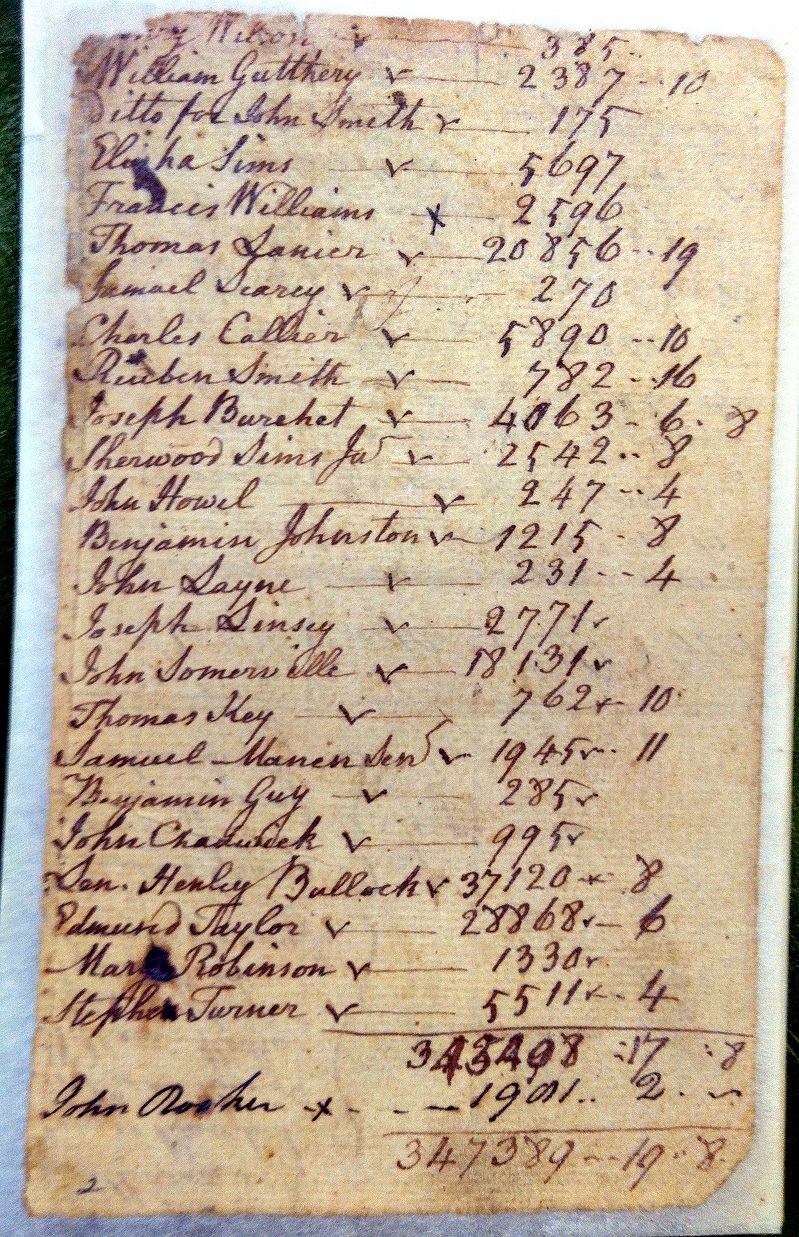 Wilson ✓ — 385..
William Gutthery ✓ — 2387 -- 10
Ditto for John Smith ✓ — 175
Elisha Sims ✓ — 5697
Francis Williams x — 2596
Thomas Lanier ✓ — 20856 -- 19
Samuel Searcy ✓ — 270
Charles Callier ✓ — 5890 -- 10
Reuben Smith ✓ — 782 -- 16
Joseph Burchet ✓ — 4063 - 6 . 8
Sherwood Sims Junr ✓ — 2542 -- 8
John Howel — ✓ 247 -- 4
Benjamin Johnston ✓ — 1215 - 8
John Layne — ✓ — 231 -- 4
Joseph Linsey ✓ — 2771 ✓
John Somerville ✓ — 18131 ✓
Thomas Key — ✓ — 762 ✓ - 10
Samuel Manen Senr ✓ — 1945 ✓ - 11
Benjamin Guy ✓ — 285 ✓
John Chadwick ✓ — 995 ✓
Len. Henley Bullock ✓ 37120 ✓ - 8
Edmund Taylor ✓ — 28868 ✓ - 6
Mary Robinson ✓ — 1330 ✓
Stephen Turner ✓ — 5511 ✓ - 4
345498 : 17 : 8
John Rooker - x - - - 1901 .. 2 . ~
347389 -- 19 .. 8
2